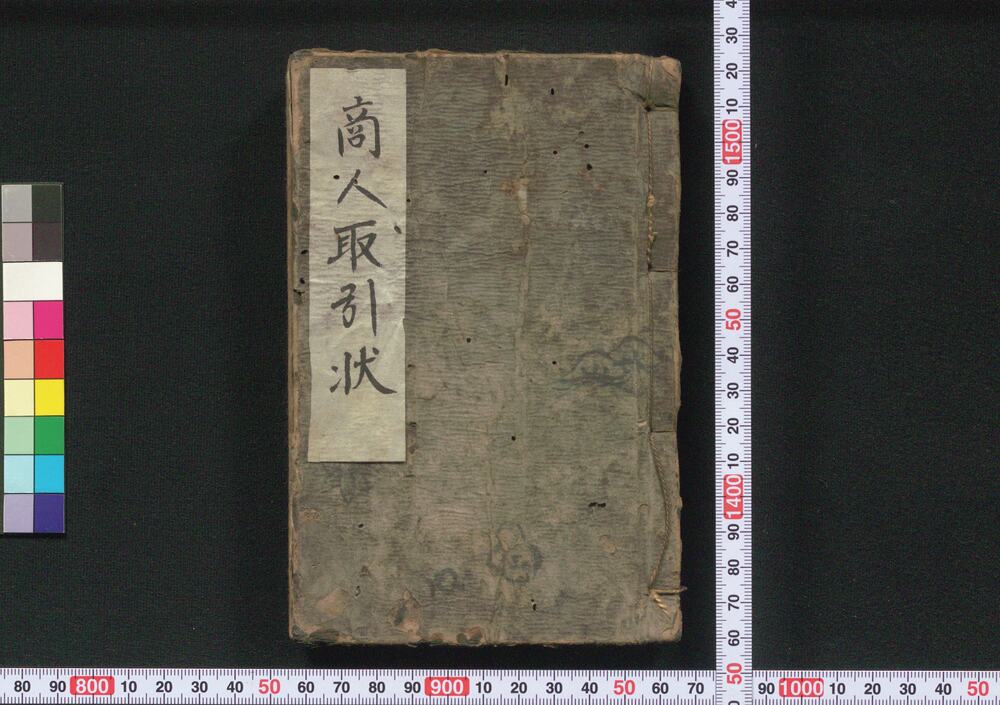 商人取引状
80 90 800 10 20 30 40 50 60 70 80 90 900 10 20 30 40 50 60 70 90 1000 10 20 30 40 50
4 30 20 10 1500 90 80 70 60 50 40 30 20 10 1400 90 80 70 60 50